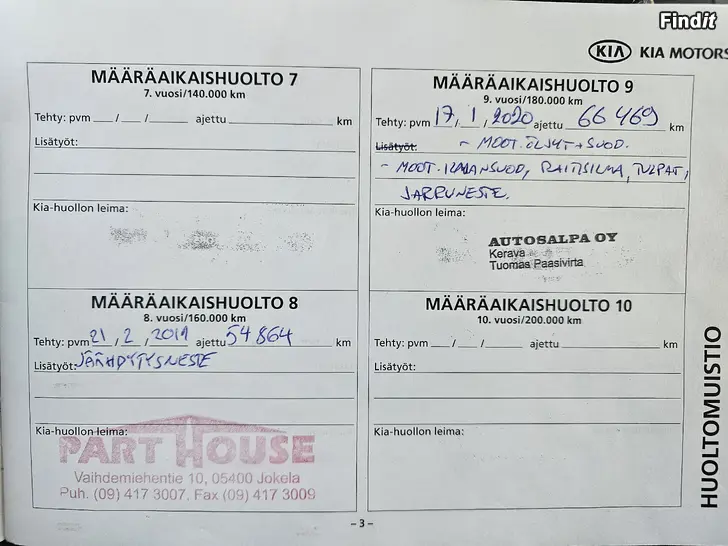 Findit
KIA KIA MOTORS
MÄÄRÄAIKAISHUOLTO 7
7. vuosi/140.000 km
Tehty: pvm / / ajettu km
Lisätyöt:
Kia-huollon leima:
MÄÄRÄAIKAISHUOLTO 8
8. vuosi/160.000 km
Tehty: pvm 21 / 2 / 2019 ajettu 54864 km
Lisätyöt: JÄÄHDYTYSNESTE
Kia-huollon leima:
PART HOUSE
Vaihdemiehentie 10, 05400 Jokela
Puh. (09) 417 3007, Fax (09) 417 3009
MÄÄRÄAIKAISHUOLTO 9
9. vuosi/180.000 km
Tehty: pvm 17 / 1 / 2020 ajettu 66 469 km
Lisätyöt: - MOOT. ÖLJYT + SUOD.
- MOOT. ILMANSUOD, RAITISILMA, TULPAT,
JARRUNESTE.
Kia-huollon leima:
AUTOSALPA OY
Kerava
Tuomas Paasivirta
MÄÄRÄAIKAISHUOLTO 10
10. vuosi/200.000 km
Tehty: pvm / / ajettu km
Lisätyöt:
Kia-huollon leima:
HUOLTOMUISTIO
– 3 –